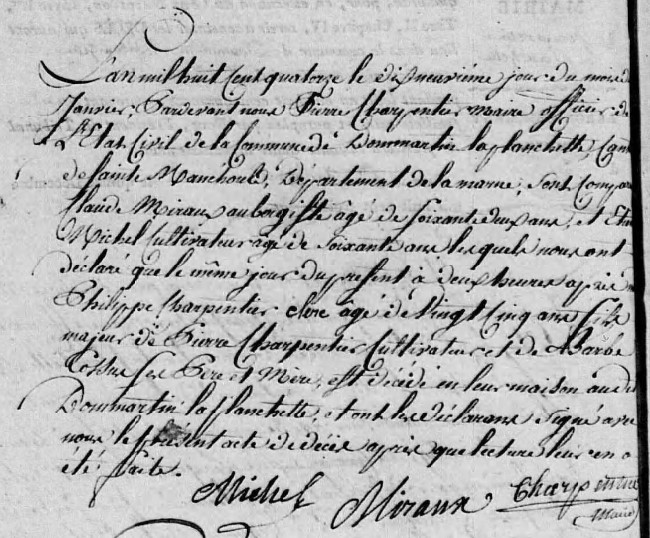 L'an mil huit Cent quatorze le dix neuvième jour du mois de
Janvier, Pardevant nous Pierre Charpentier maire officier de
L'Etat Civil de la Commune de Dommartin la planchette, Cant
de Sainte Manéhould, Département de la marne, sont Compar
Claude Miraux aubergiste âgé de soixante deux ans, et Eti
Michel Cultivateur âgé de soixante ans lesquels nous ont
déclaré que le même jour du présent à deux heures après m
Philippe Charpentier âgé de Vingt Cinq ans fils
majeur de Pierre Charpentier Cultivateur et de Barbe
ses Pere et Mère, est décédé en leur maison au dit
Dommartin la planchette, et ont les déclarans signé avec
nous le présent acte de décès après que lecture leur en a
été faite.
Michel Miraux Charpentier
Maire